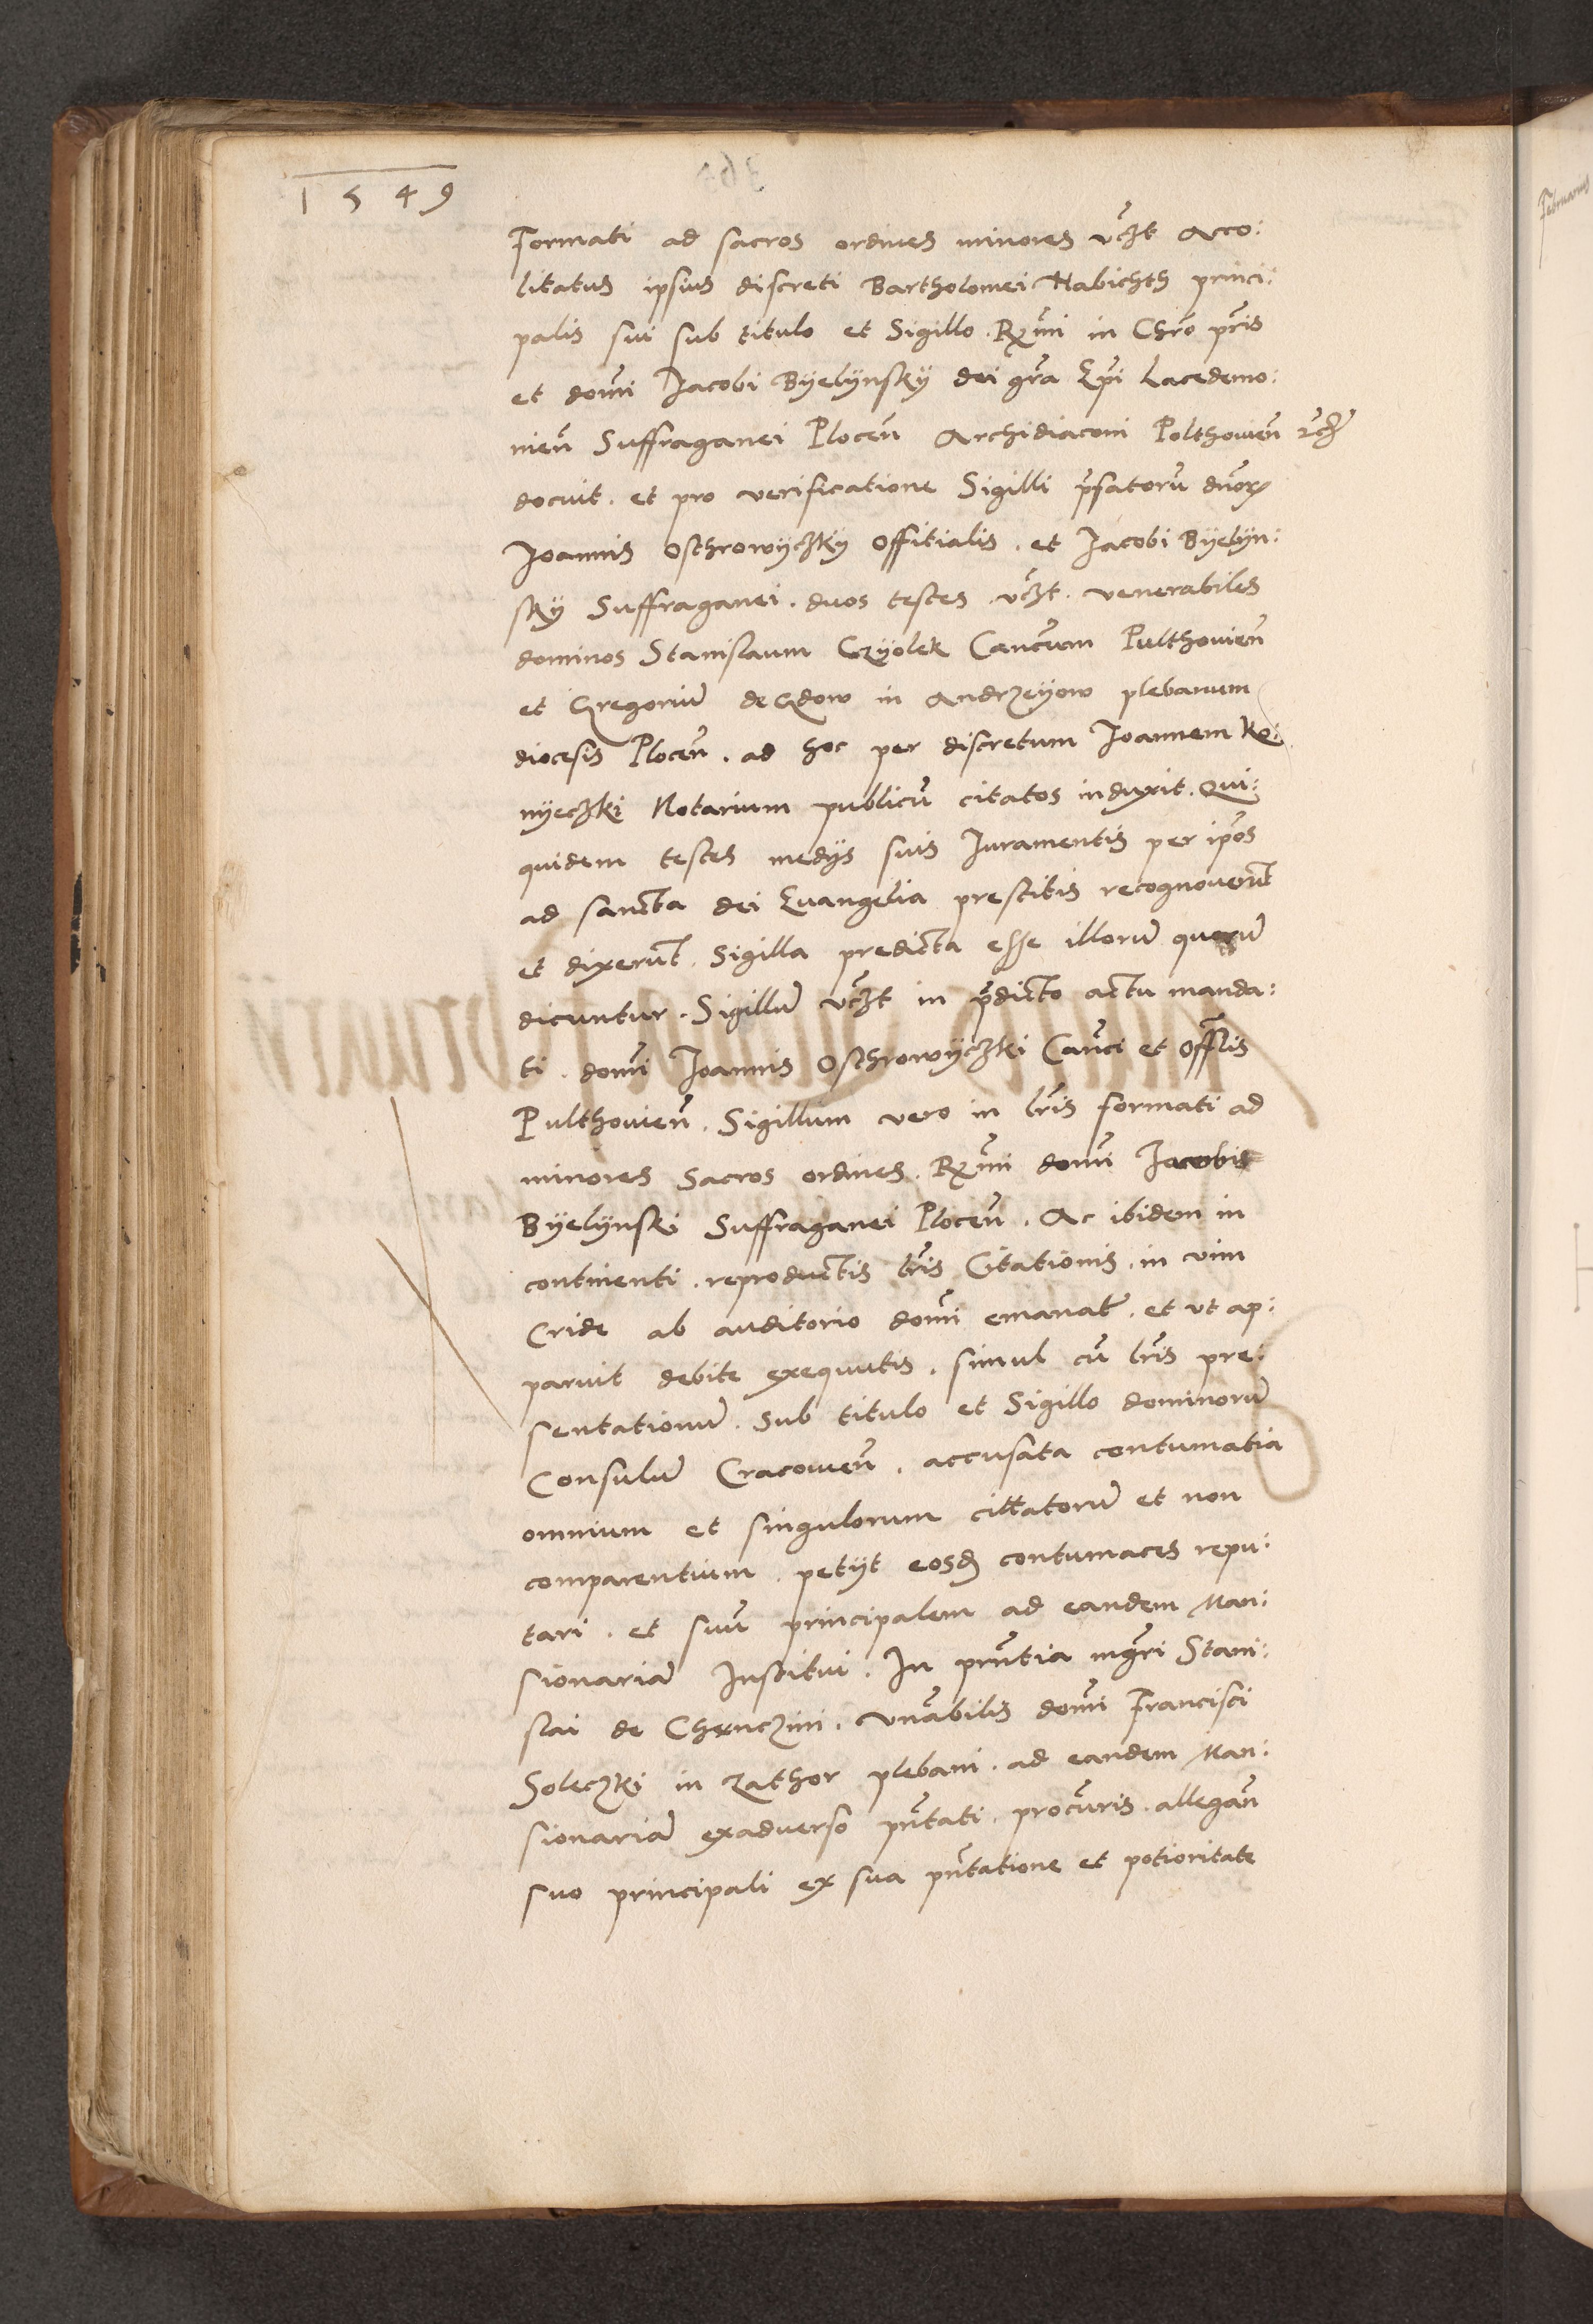 1549
Formati ad sacros ordines minores vczt Aco:
litatus ipsius discreti Bartholomei Habichth princi:
palis sui sub titulo et Sigillo Rmi in Chro pris
et domi Jacobi Byelynsky dei gra Epi Lacedemo:
nien Suffraganei Plocen Archidiaconi Polthovien
docuit. et pro verificatione Sigilli prefatorum duorum
Joannis Osthrowyczky offitialis. et Jacobi Byelyn:
sky Suffraganei. duos testes vczt. venerabiles
dominos Stanislaum Czyolek Cancum Pulthovien
et Gregorium de Gdow in Andrzeyow plebanum
diocesis Plocen. ad hoc per discretum Joannem Ko:
nyeczki Notarium publicum citatos induxit. Qui:
quidem testes medys suis Iuramentis per ipos
ad sancta dei Euangelia prestitis recognoverunt
et dixerunt. Sigilla predicta esse illorum quorum
dicuntur. Sigillum vczt in predicto actu manda:
ti. domi Joannis Osthrowyczki Canci et Offlis
Pulthovien. Sigillum vero in lris formati ad
minores Sacros ordines. Rmi domi Jacobi
Byelynski Suffraganei Plocen. Ac ibidem in
continenti. reproductis lris Citationis. in vim
Cride ab auditorio domi emanat. et vt ap:
paruit debite exequutis. simul cum lris pre:
sentationum. Sub titulo et Sigillo dominorum
Consulum Cracovien. accusata contumatia
omnium et singulorum cittatorum et non
comparentium. petyt eosd contumaces repu:
tari. et suum principalem ad eandem Man:
sionariam Institui. In pntia mgri Stani:
slai de Chenczini. vnabilis domi Francisci
Soleczki in Zathor plebani. ad eandem Man:
sionariam exadverso pntati. procuris. allegan
suo principali ex sua pntatione et potioritate
Februarius